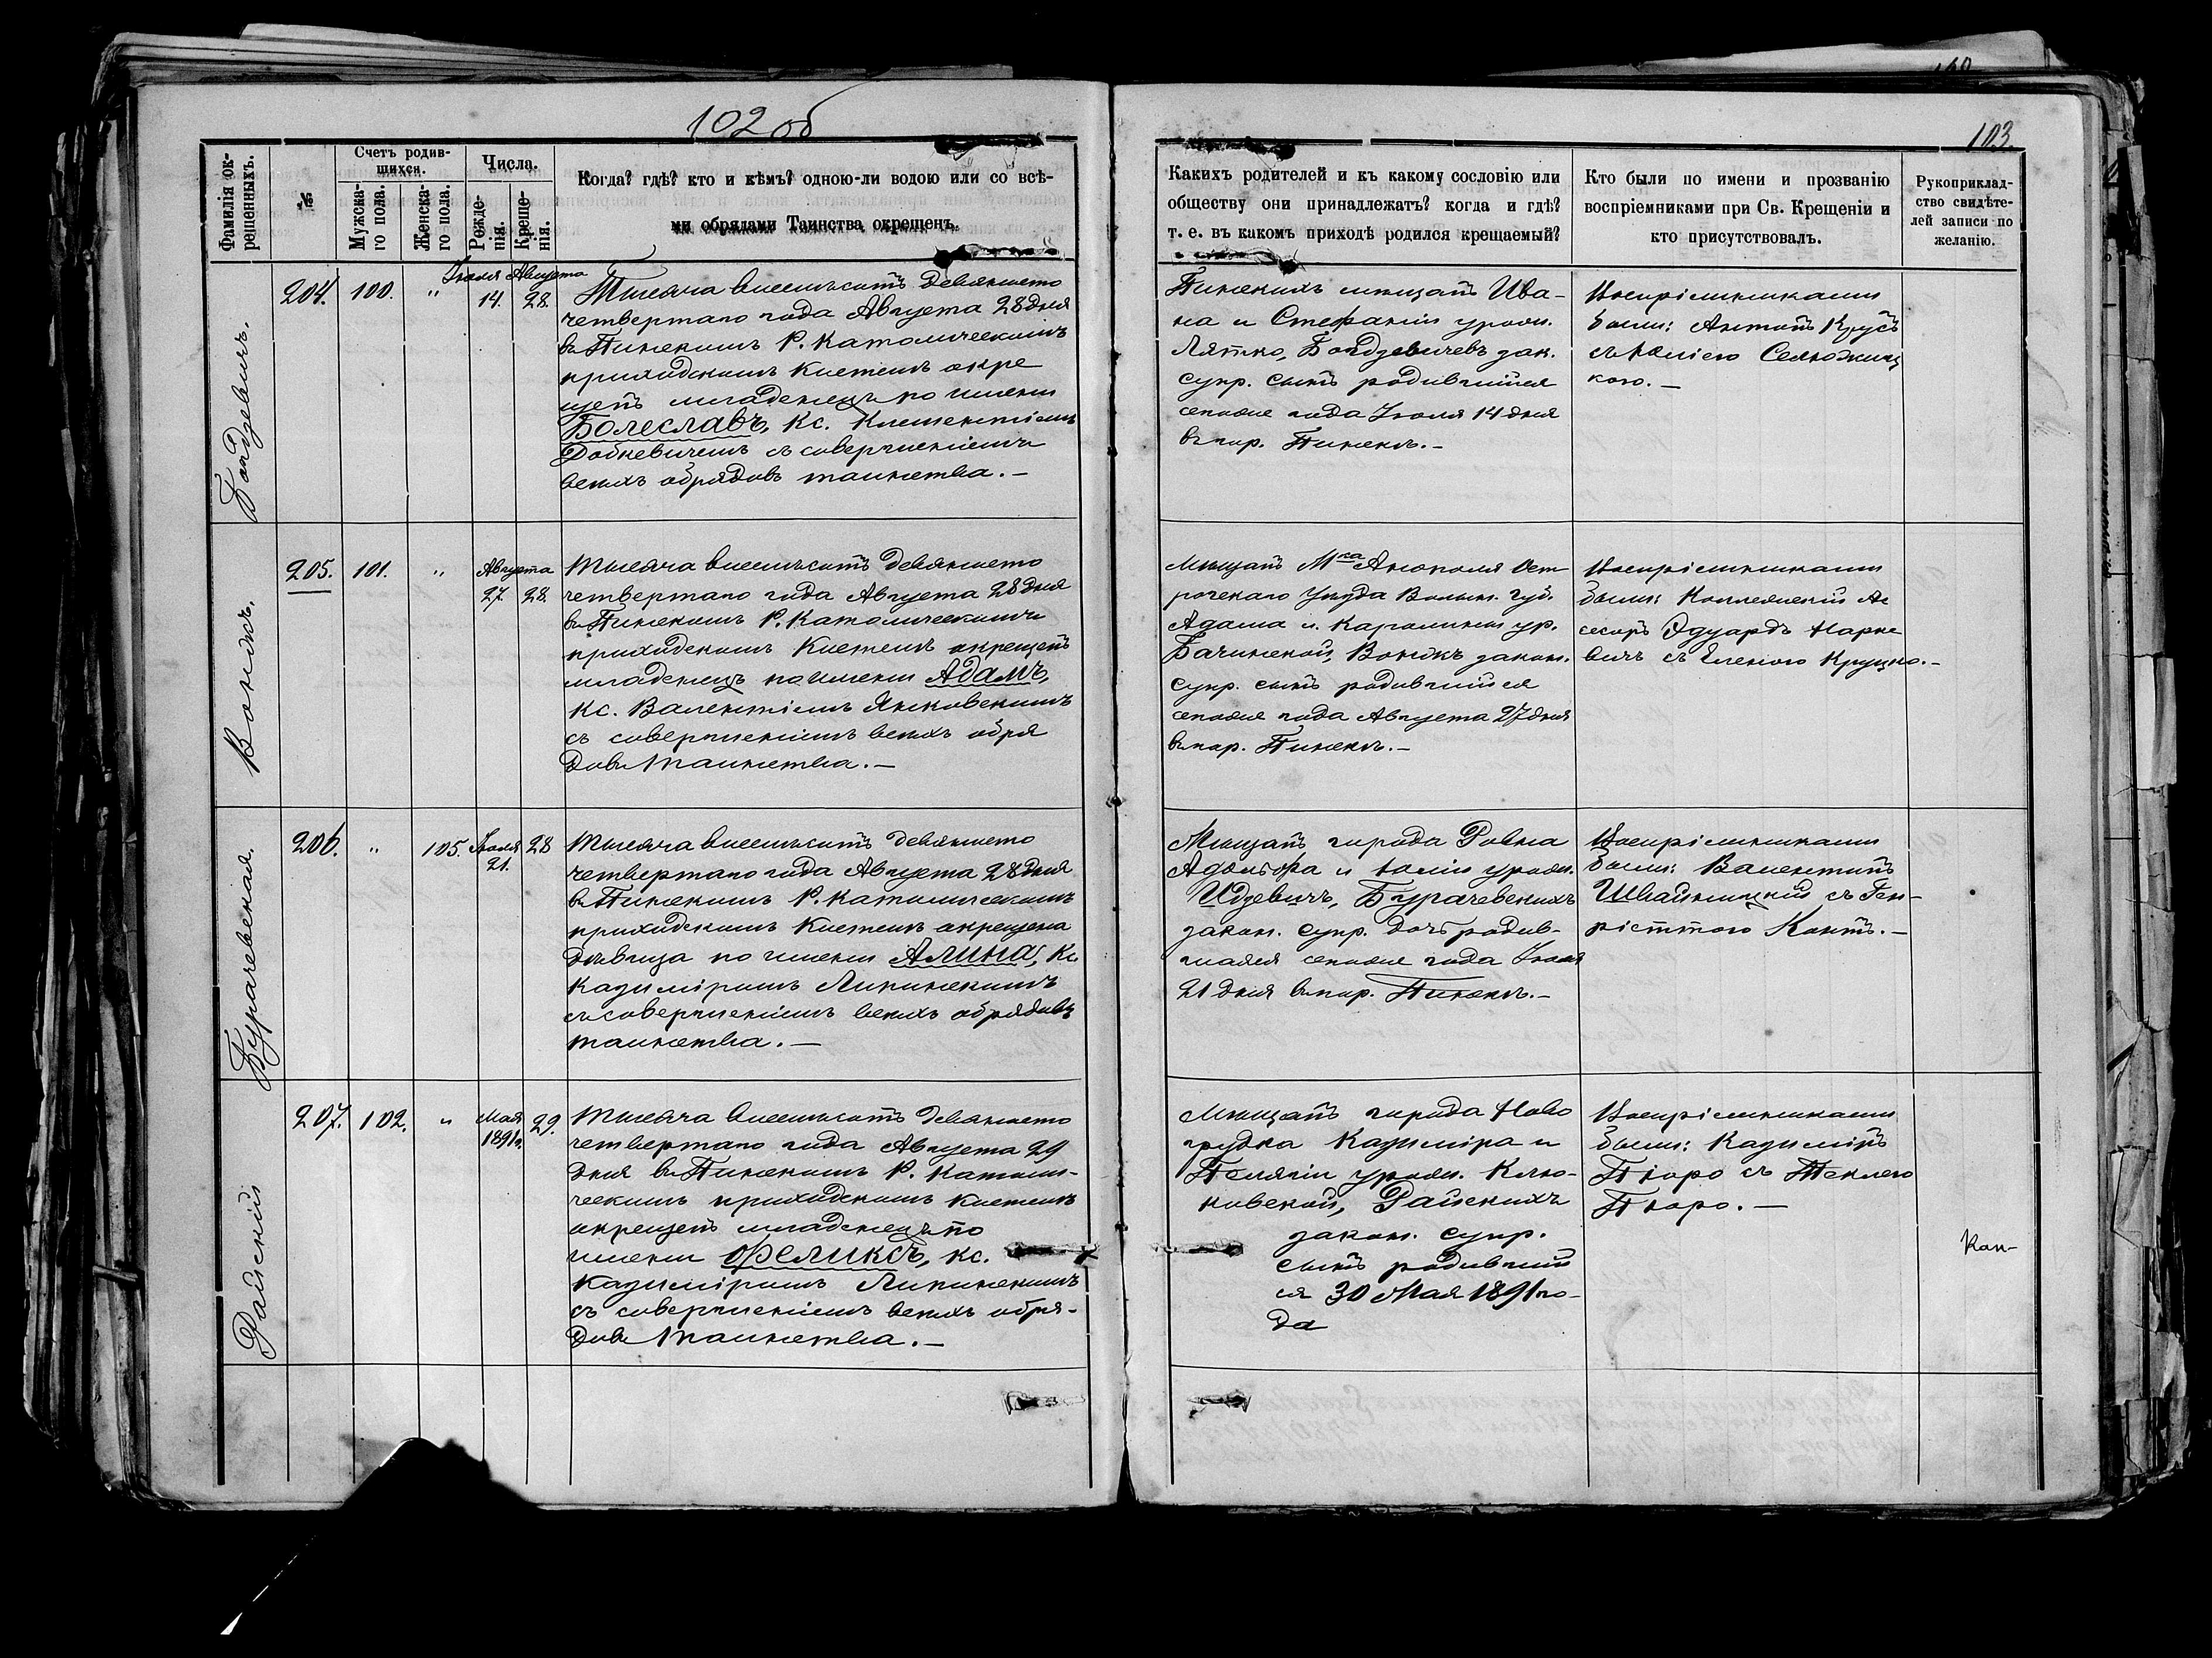 102 об
103
Фамилія ок-
рещенныхъ.
№
Счетъ родив-
шихся.
Мужска-
го пола.
Женска-
го пола.
Числа.
Рожде-
нія.
Креще-
нія.
Когда? гдѣ? кто и кѣмъ? одною-ли водою или со всѣ-
ми обрядами Таинства окрещенъ.
Какихъ родителей и къ какому сословію или
обществу они принадлежатъ? когда и гдѣ?
т. е. въ какомъ приходѣ родился крещаемый?
Кто были по имени и прозванію
воспріемниками при Св. Крещеніи и
кто присутствовалъ.
Рукоприклад-
ство свидѣте-
лей записи по
желанію.
204. 100. "
Іюля Августа
14. 28.
Тысяча восемьсотъ девяносто
четвертаго года Августа 28 дня
въ Пинскомъ Р. Католическомъ
приходскомъ костелѣ окре
щенъ младенецъ по имени
Болеславъ, Кс. Климентіемъ
Добкевичемъ съ совершеніемъ
всѣхъ обрядовъ таинства.—
Пинскихъ мѣщанъ Ива-
на и Стефаніи урожд.
Лятко, законн.
супр. сынъ родившійся
сего же года Іюля 14 дня
въ пар. Пинск.—
Воспріемниками
были: Антонъ Крусъ
съ
кою.—
Вонсикъ.
205. 101. "
Августа
27. 28.
Тысяча восемьсотъ девяносто
четвертаго года Августа 28 дня
въ Пинскомъ Р. Католическомъ
приходскомъ Костелѣ окрещенъ
младенецъ по имени Адамъ,
Кс. Валентіемъ Янковскимъ
съ совершеніемъ всѣхъ обря
довъ Таинства.—
Мѣщанъ М-ка Анополя Ост
рогскаго Уѣзда Волын. Губ.
Адама и Каролины ур.
Бачинской, Вонсикъ закон.
супр. сынъ родившійся
сего же года Августа 27 дня
въ пар. Пинск.—
Воспріемниками
были: Коллежскій Ас
сесоръ Эдуардъ Нарке
вичъ съ Еленою Крушко.—
Бурачевская.
206. " 105.
Іюля 28
21.
Тысяча восемьсотъ девяносто
четвертаго года Августа 28 дня
въ Пинскомъ Р. Католическомъ
приходскомъ Костелѣ окрещена
дѣвица по имени Алина, Кс.
Казиміромъ Липинскимъ
съ совершеніемъ всѣхъ обрядовъ
таинства.—
Мѣщанъ города Ровна
Адольфа и Юліи урожд.
Идзевичъ, Бурачевскихъ
закон. супр. дочь родив-
шаяся сего же года Іюля
21 дня въ пар. Пинск.—
Воспріемниками
были: Валентинъ
Швайницкій съ Ген-
ріеттою Контъ.—
Райскій
207. 102. "
Мая 29.
1891 г.
Тысяча восемьсотъ девяносто
четвертаго года Августа 29
дня въ Пинскомъ Р. Католи-
ческомъ приходскомъ костелѣ
окрещенъ младенецъ по
имени Феликсъ, Кс.
Казиміромъ Липинскимъ
съ совершеніемъ всѣхъ обря-
довъ Таинства.—
Мѣщанъ города Ново
грудка Казиміра и
Пелагіи урожд. Клю-
ковской, Райскихъ
закон. супр.
сынъ родившій
ся 30 Мая 1891 го-
да
Воспріемниками
были: Казиміръ
Пюро съ Теклею
Пюро.—
Кан-